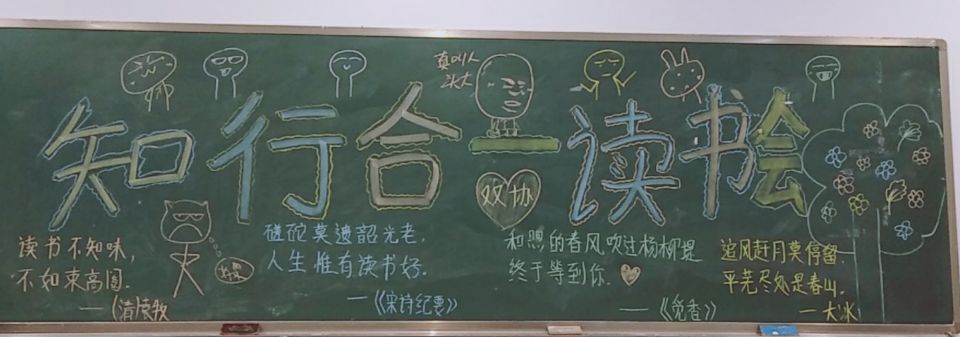 真叫人
头大
知行合一读书会
双协
读书不知味，
不如束高阁。
——清·袁牧
磋砣莫遗韶光老，
人生惟有读书好。
——《宋诗纪要》
和煦的春风吹过杨柳堤
终于等到你。
——《觅香》
追风赶月莫停留
平芜尽处是春山。
——大冰